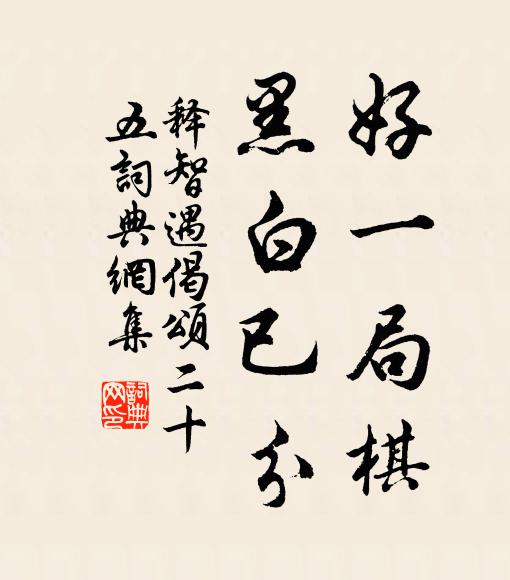 好一局棋
黑白已分
释智遇偈頌二十
五詞典網集
詞典
网印